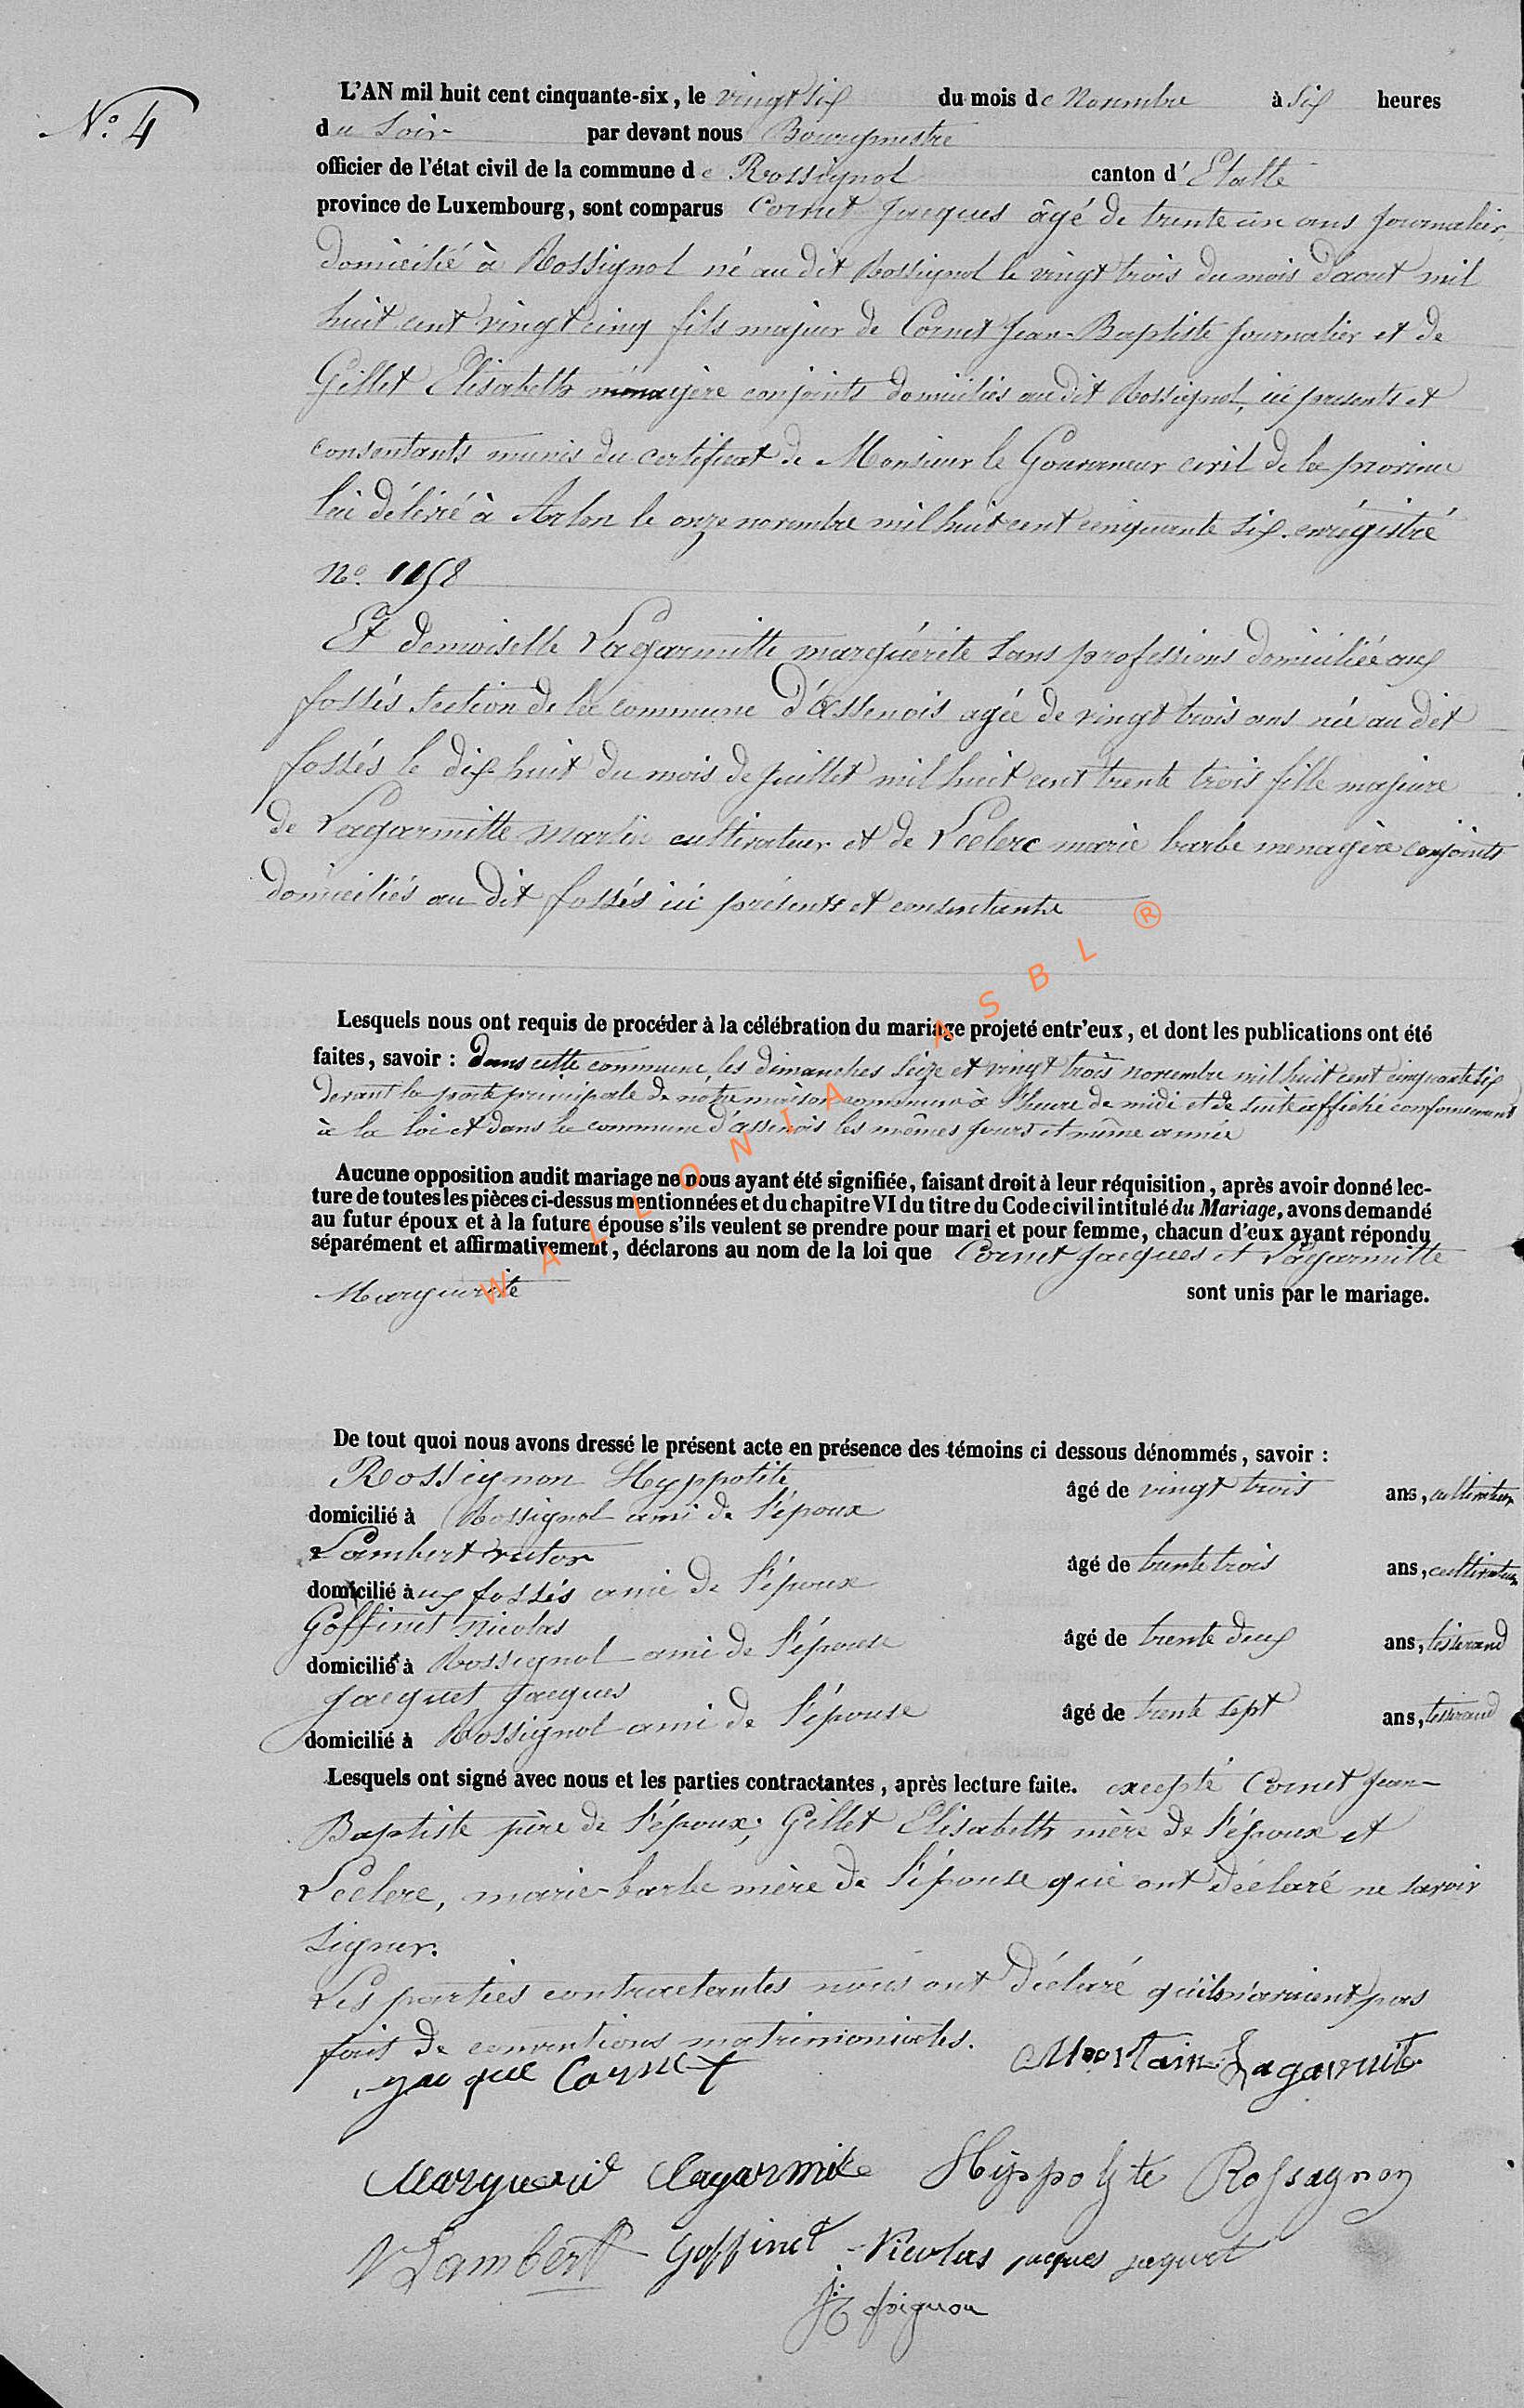 N° 4
L'AN mil huit cent cinquante-six, le vingt six du mois de Novembre à six heures
du soir par devant nous Bourgmestre
officier de l'état civil de la commune de Rossignol canton d'Etalle
province de Luxembourg, sont comparus Cornet Jacques âgé de trente un ans journalier,
domicilié à Rossignol né au dit Rossignol le vingt trois du mois d'aout mil
huit cent vingt cinq fils majeur de Cornet Jean-Baptiste journalier et de
Gillet Elisabeth ménagère conjoints domiciliés au dit Rossignol, ici présents et
consentants munis du certificat de Monsieur le Gouverneur civil de la province
lui délivré à Arlon le onze novembre mil huit cent cinquante six. enrégistré
N° 1158
Et demoiselle Lagarmitte marguérite sans professions domiciliée aux
fossés section de la commune d'assenois agée de vingt trois ans née au dit
fossés le dix huit du mois de juillet mil huit cent trente trois fille majeure
de Lagarmitte martin cultivateur et de Leclerc marie barbe menagère conjoints
domiciliés au dit fossés ici présents et consentants
Lesquels nous ont requis de procéder à la célébration du mariage projeté entr'eux, et dont les publications ont été
faites, savoir : dans cette commune, les dimanches seize et vingt trois novembre mil huit cent cinquante six
devant la porte principale de notre maison commune à l'heure de midi et de suite affiché conformement
à la loi et dans la commune d'assenois les mêmes jours et même année
Aucune opposition audit mariage ne nous ayant été signifiée, faisant droit à leur réquisition, après avoir donné lec-
ture de toutes les pièces ci-dessus mentionnées et du chapitre VI du titre du Code civil intitulé du Mariage, avons demandé
au futur époux et à la future épouse s'ils veulent se prendre pour mari et pour femme, chacun d'eux ayant répondu
séparément et affirmativement, déclarons au nom de la loi que Cornet Jacques et Lagarmitte
Marguerite sont unis par le mariage.
De tout quoi nous avons dressé le présent acte en présence des témoins ci dessous dénommés, savoir :
Rossignon Hyppolite âgé de vingt trois ans, cultivateur
domicilié à Rossignol ami de l'époux
Lambert victor âgé de trente trois ans, cultivateur
domicilié aux fossés ami de l'époux
Goffinet nicolas âgé de trente deux ans, tisserand
domicilié à Rossignol ami de l'épouse
Jacquet Jacques âgé de trente sept ans, tisserand
domicilié à Rossignol ami de l'épouse
Lesquels ont signé avec nous et les parties contractantes, après lecture faite. excepté Cornet Jean-
Baptiste père de l'époux, Gillet Elisabeth mère de l'époux et
Leclerc, marie-barbe mère de l'épouse qui ont déclaré ne savoir
signer.
Les parties contractantes nous ont déclaré qu'ils n'avaient pas
fait de conventions matrimoniales.
jacque Cornet Martain Lagarmite
Marguerit Lagarmite Hyppolyte Rossagnon
V Lambert Goffinet Nicolas jacques jaquet
WALLONIA ASBL ®